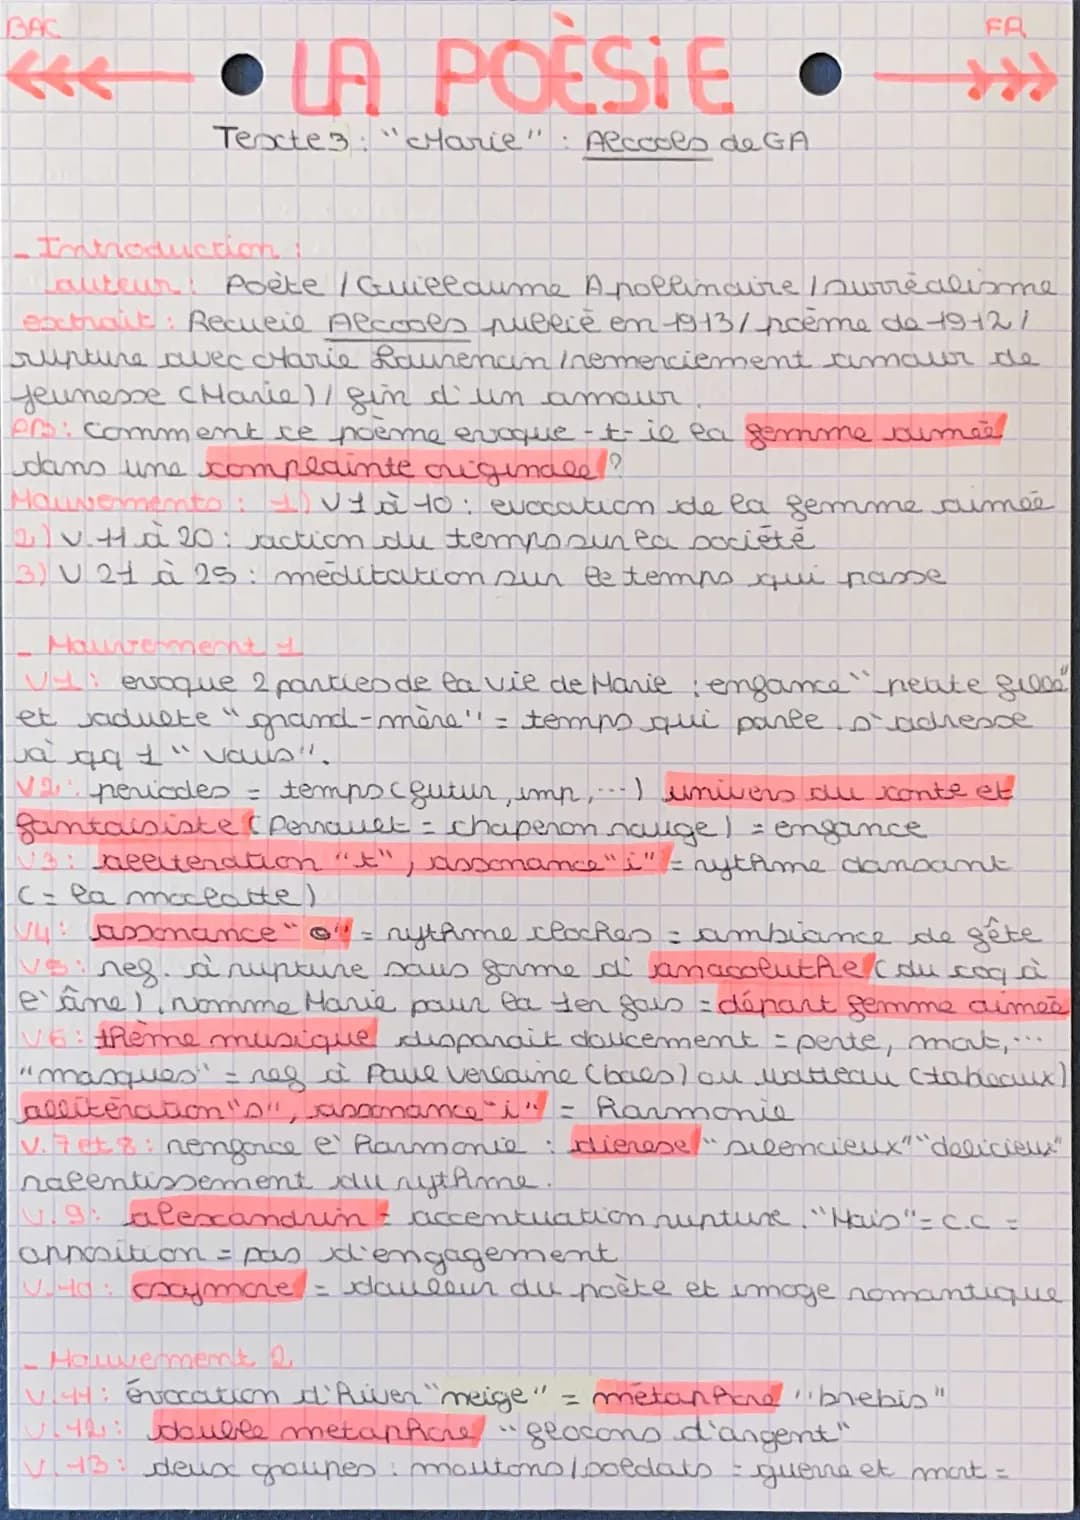 BAC
FR
LA POÈSiE
Texte 3 : "Marie" : Alcools de GA
- Introduction :
auteur : Poète / Guillaume Apollinaire / surréalisme
extrait : Recueil Alcools publié en 1913 / poème de 1912 /
rupture avec Marie Laurencin / remerciement amour de
jeunesse (Marie) / fin d'un amour.
PB : Comment ce poème evoque-t-il la femme aimée
dans une complainte originale ?
Mouvements : 1) V 1 à 10 : evocation de la femme aimée
2) V. 11 à 20 : action du temps sur la société
3) V 21 à 25 : méditation sur le temps qui passe
- Mouvement 1
V1 : evoque 2 parties de la vie de Marie : enfance "petite fille"
et adulte "grand-mère" = temps qui parle. s'adresse
à qq 1 "vous".
V2 : periodes = temps (futur, imp, ...) univers du conte et
fantaisiste (Perrault = chaperon rouge) = enfance
V3 : alliteration "t", assonance "i" = rythme dansant
(= la maclotte)
V4 : assonance "o" = rythme cloches = ambiance de fête
V5 : ref. à rupture sous forme d'anacoluthe (du coq à
l'âne), nomme Marie pour la 1er fois = départ femme aimée
V6 : thème musique disparait doucement = perte, mort, ...
"masques" = ref à Paul Verlaine (bals) ou Watteau (tableaux)
allitération "s", assonance "i" = Harmonie
V. 7 et 8 : renforce l'harmonie : dierese "silencieux" "delicieux"
ralentissement du rythme.
V. 9 : alexandrin = accentuation rupture. "Mais" = C.C =
opposition = pas d'engagement
V. 10 : oxymore = douleur du poète et image romantique
- Mouvement 2
V. 11 : évocation d'hiver "neige" = métaphore "brebis"
V. 12 : double metaphore "flocons d'argent"
V. 13 : deux groupes : moutons / soldats = guerre et mort =